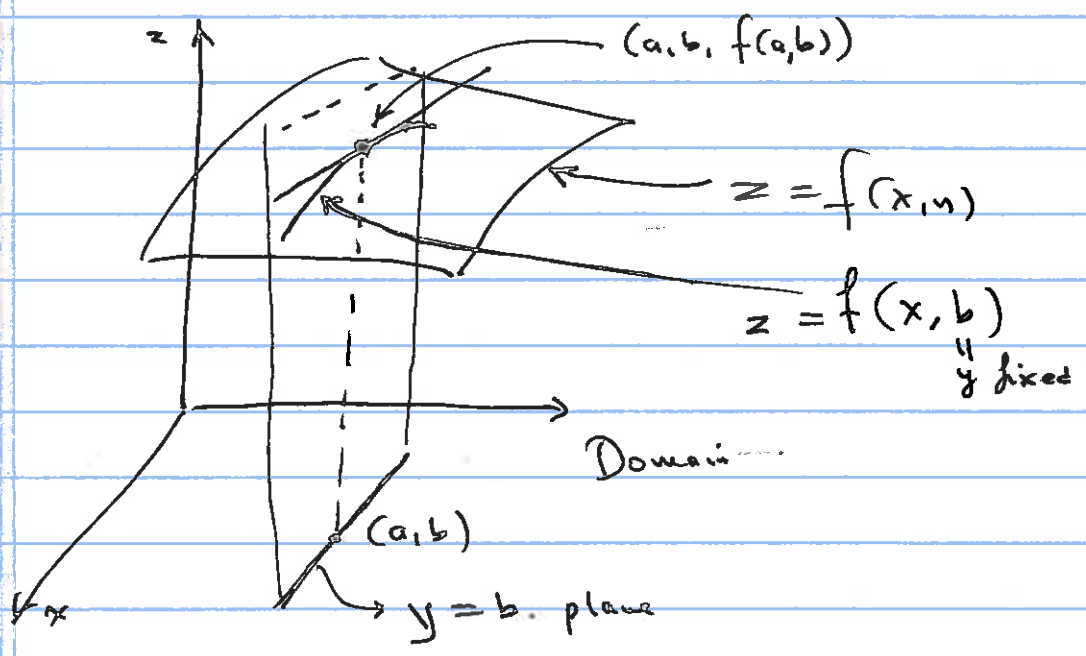 z
(a, b, f(a,b))
z = f(x, y)
z = f(x, b)
"
y fixed
Domain
(a, b)
x
y = b. plane